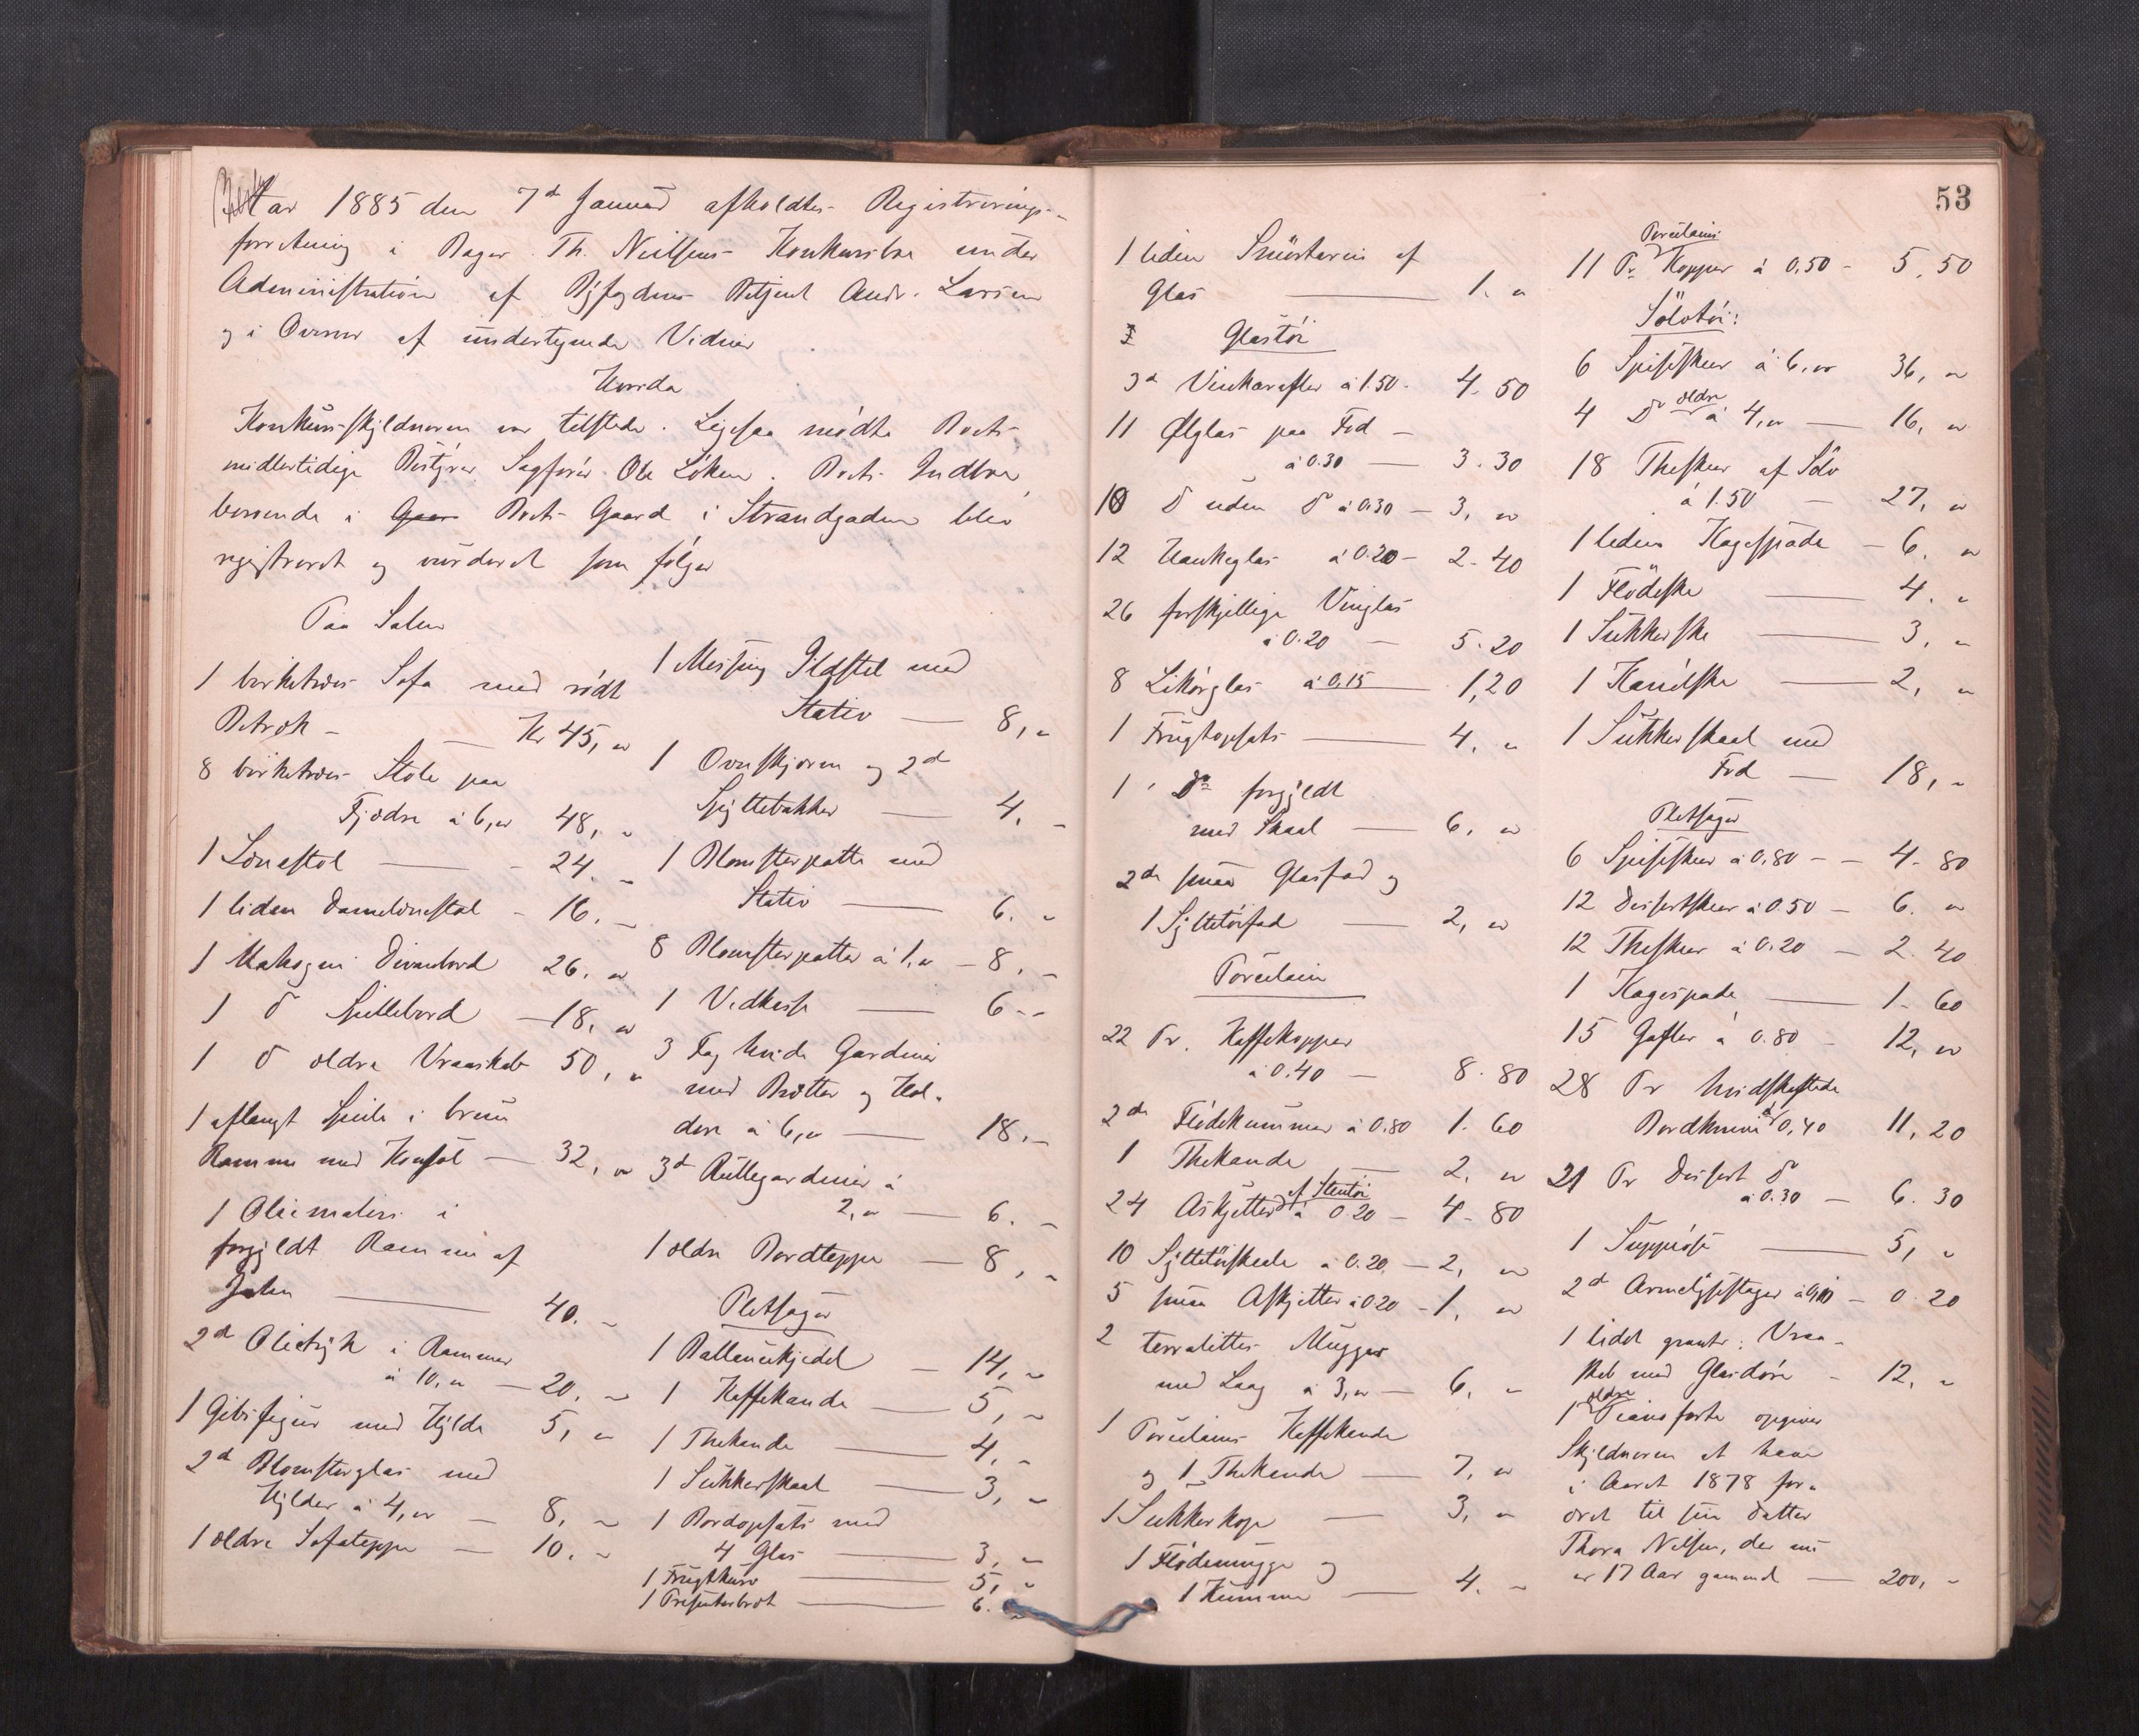 Aar 1885 den 7d Januar afholdtes Registrerings-
forretning i Bager Th. Nielsens Konkursbo under
Administration af Byfogdens Betjent Andr. Larsen
og i Overvær af undertegnede Vidner
Hvorda
Konkursskyldneren var tilstede. Ligesaa mødte Boets
midlertidige Bestyrer Sagfører Ole Løken. Boets Indbo,
beroende i Gaar Boets Gaard i Strandgaden blev
registreret og vurderet som følger
Paa Salen
1 birketræs Sofa med rødt
Betræk - Kr 45, "
8 birketræs Stole paa
Fjædre á 6," 48, "
1 Lænestol — 24. "
1 liden Damelænestol - 16. "
1 Mahogni Divanbord 26. "
1 do Spillebord - 18, "
1 do ældre Vraaskab 50, "
1 aflangt Speile i brun
Ramme med Konsol — 32, "
1 Oliemaleri i
forgyldt Ramme af
— 40. "
2d Olietryk i Rammer
á 10," — 20, "
1 Gibsfigur med Hylde 5, "
2d Blomsterglas med
Hylder á 4," — 8, "
1 ældre Sofateppe — 10. "
1 Messing Ildstel med
Stativ — 8, "
1 Ovnskjærm og 2d
Spyttebakker — 4, "
1 Blomsterpotte med
Stativ — 6. "
8 Blomsterpotter á 1," — 8, "
1 Vedkasse — 6 - "
3 Fag hvide Gardiner
med Bretter og Hol-
dere á 6," — 18, "
3d Rullegardiner á
2," — 6. "
1 ældre Bordteppe — 8, "
Pletsager
1 Ballancekjedel — 14, "
1 Kaffekande — 5, "
1 Thekande — 4, "
1 Sukkerskaal — 3, "
1 Bordopsats med
4 Glas — 3, "
1 Frugtkurv — 5, "
1 Presenterbret — 6. "
53
1 liden Smørterin af
Glas — 1. "
Glastøi
3d Vinkarafler á 1.50 - 4. 50
11 Ølglas paa Fod -
á 0.30 — 3. 30
10 do uden do á 0.30 — 3, "
12 Hankeglas á 0.20 - 2. 40
26 forskjellige Vinglas
á 0.20 — 5. 20
8 Likørglas á 0,15 — 1,20
1 Frugtopsats — 4. "
1 do forgyldt
med Skaal — 6, "
2de smaa Glasfad og
1 Syltetøifad — 2, "
Porcelain
22 Pr. Kaffekopper
á 0.40 — 8. 80
2de Flødekummer á 0.80 1. 60
1 Thekande — 2. "
24 Askjetter af Stentøi á 0.20 — 4. 80
10 Syltetøiskaale á 0.20 — 2, "
5 smaa Askjetter á 0.20 - 1, "
2 terralittes Mugger
med Laag á 3," — 6, "
1 Porcelains Kaffekande
og 1 Thekande — 7, "
1 Sukkerkop — 3, "
1 Flødemugge og
1 Kumme — 4. "
11 Pr Porcelains Kopper á 0,50 - 5. 50
Sølvtøi:
6 Spiseskeer á 6," 36, "
4 do ældre á 4," — 16, "
18 Theskeer af Sølv
á 1.50 — 27, "
1 liden Kagespade — 6. "
1 Flødeske — 4. "
1 Sukkerske — 3, "
1 Kanelske — 2, "
1 Sukkerskaal med
Fod — 18, "
Pletsager
6 Spiseskeer á 0.80 - - 4. 80
12 Dessertskeer á 0.50 — 6. "
12 Theskeer á 0.20 — 2. 40
1 Kagespade — 1. 60
15 Gafler á 0.80 - 12, "
28 Pr hvidskaftede
Bordknive á 0,40 11, 20
21 Pr Dessert do
á 0.30 — 6. 30
1 Suppeøse — 5, "
2d Armelysestager á 0,10 — 0. 20
1 lidet Vraa-
skab med Glasdøre - 12, "
1 ældre Pianoforte opgiver
Skyldneren at have
i Aaret 1878 for-
æret til sin Datter
Thora Nielsen, der nu
er 17 Aar gammel — 200, "